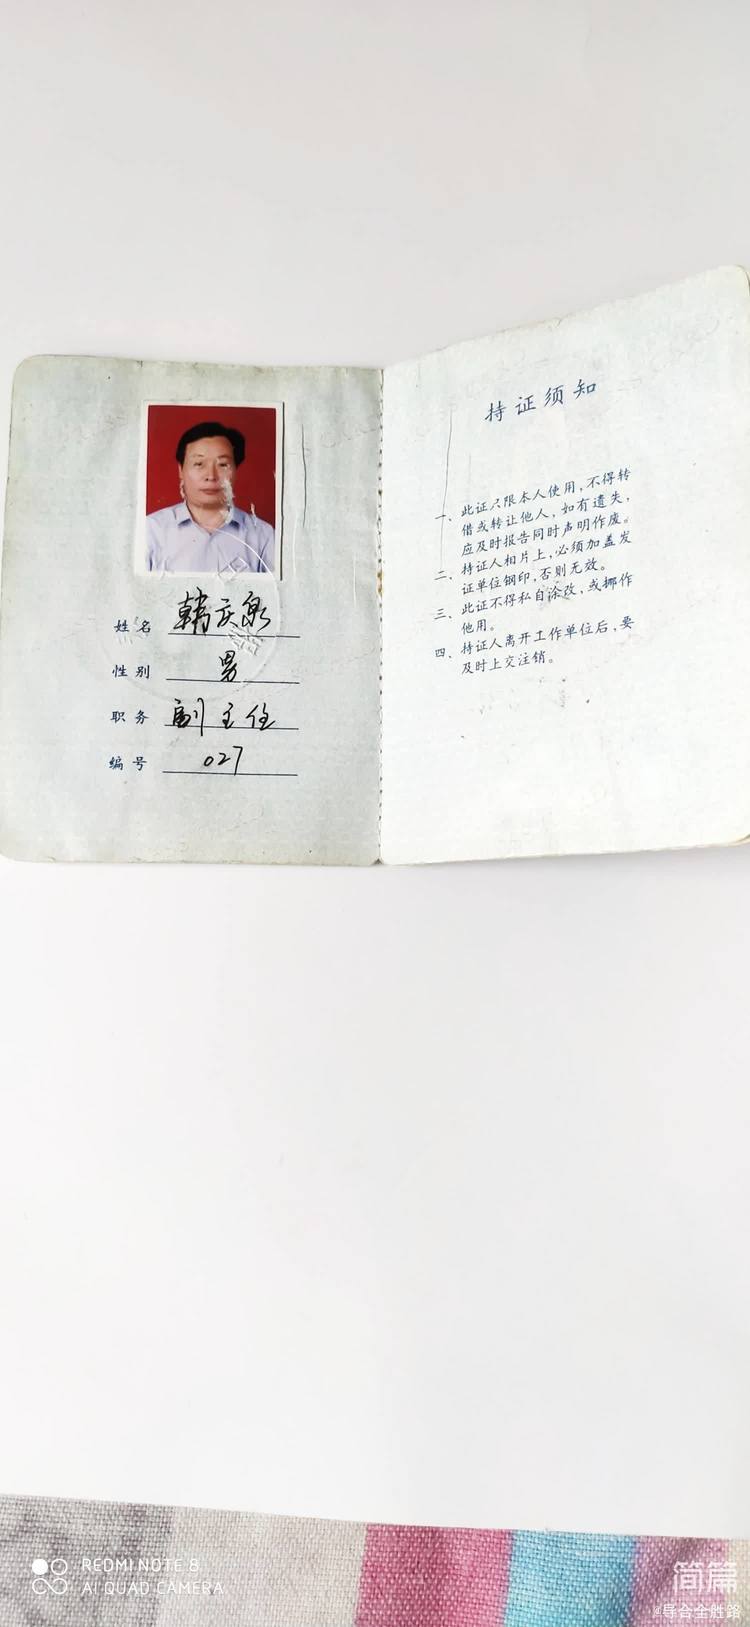 姓名 韩庆泉
性别 男
职务 副主任
编号 027
持证须知
一、此证只限本人使用,不得转
借或转让他人,如有遗失,
应及时报告同时声明作废。
二、持证人相片上,必须加盖发
证单位钢印,否则无效。
三、此证不得私自涂改,或挪作
他用。
四、持证人离开工作单位后,要
及时上交注销。
REDMI NOTE 8
AI QUAD CAMERA
简篇
@导合全胜路